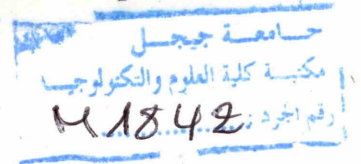 جامعة جيجل
مكتبة كلية العلوم والتكنولوجيا
رقم الجرد : M 1842